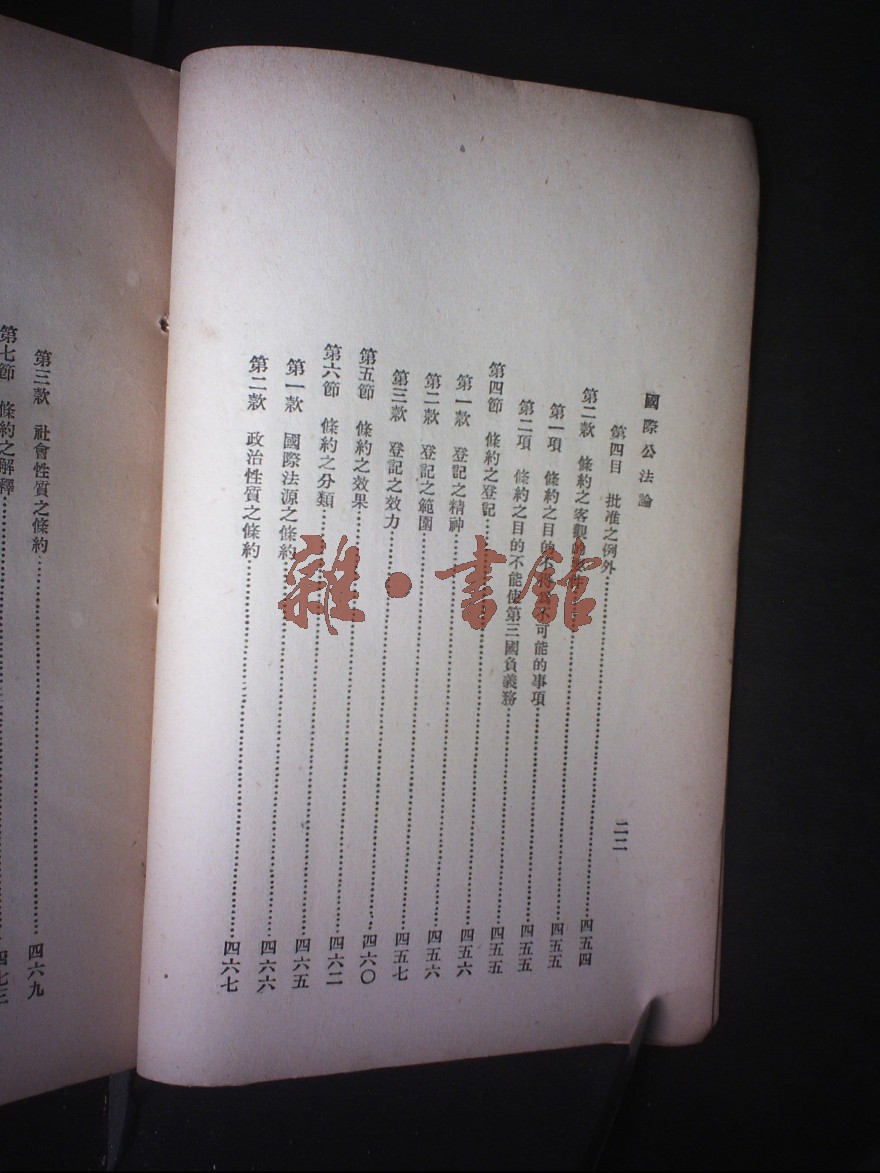 國際公法論
二二
第四目 批准之例外……四五四
第二款 條約之客觀的……四五五
第一項 條約之目的不可能的事項……四五五
第二項 條約之目的不能使第三國負義務……四五五
第四節 條約之登記……四五六
第一款 登記之精神……四五六
第二款 登記之範圍……四五七
第三款 登記之效力……四六〇
第五節 條約之效果……四六二
第六節 條約之分類……四六五
第一款 國際法源之條約……四六六
第二款 政治性質之條約……四六七
第三款 社會性質之條約……四六九
第七節 條約之解釋……四七三
雜·書館